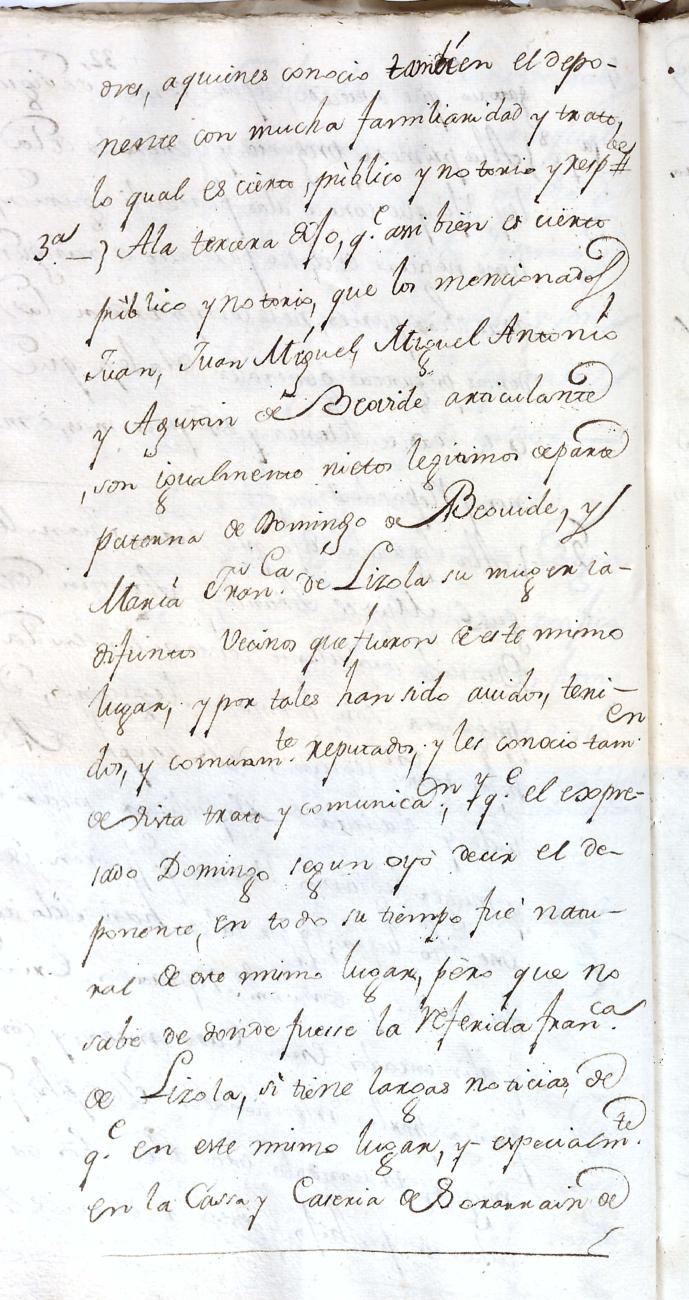 dres, a quienes conocio tambien el depo-
nente con mucha familiaridad y trato,
lo qual es cierto, público y notorio y resp.de
3ª — } A la tercera dijo, q.e assi bien es cierto
público y notorio, que los mencionados
Juan, Juan Miguel, Miguel Antonio
y Agustin de Beovide articulante
, son igualmente nietos legitimos de parte
paterna de Domingo de Beovide, y
Maria Fran.ca de Lizola su muger ia-
difuntos Vecinos que fueron de este mismo
lugar, y por tales han sido auidos, teni-
dos, y comunm.te reputados, y les conocio tam.en
de vista trato y comunica.on, y q.e el expre-
sado Domingo segun oyó decir el de-
ponente, en todo su tiempo fué natu-
ral de este mismo lugar, pero que no
sabe de donde fuesse la referida fran.ca
de Lizola, si tiene largas noticias de
q.e en este mismo lugar, y especialm.te
en la Cassa y Caseria de Sorarrain de